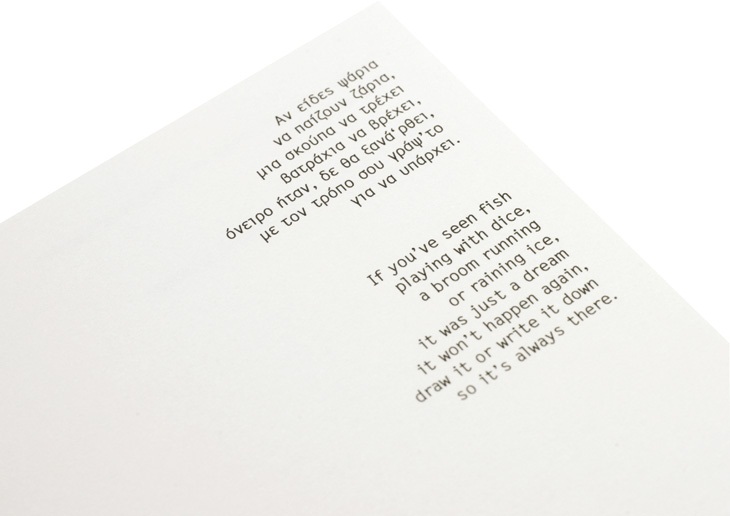 Αν είδες ψάρια
να παίζουν ζάρια,
μια σκούπα να τρέχει
βατράχια να βρέχει,
όνειρο ήταν, δε θα ξανά'ρθει,
με τον τρόπο σου γράψ'το
για να υπάρχει.
If you've seen fish
playing with dice,
a broom running
or raining ice,
it was just a dream
it won't happen again,
draw it or write it down
so it's always there.